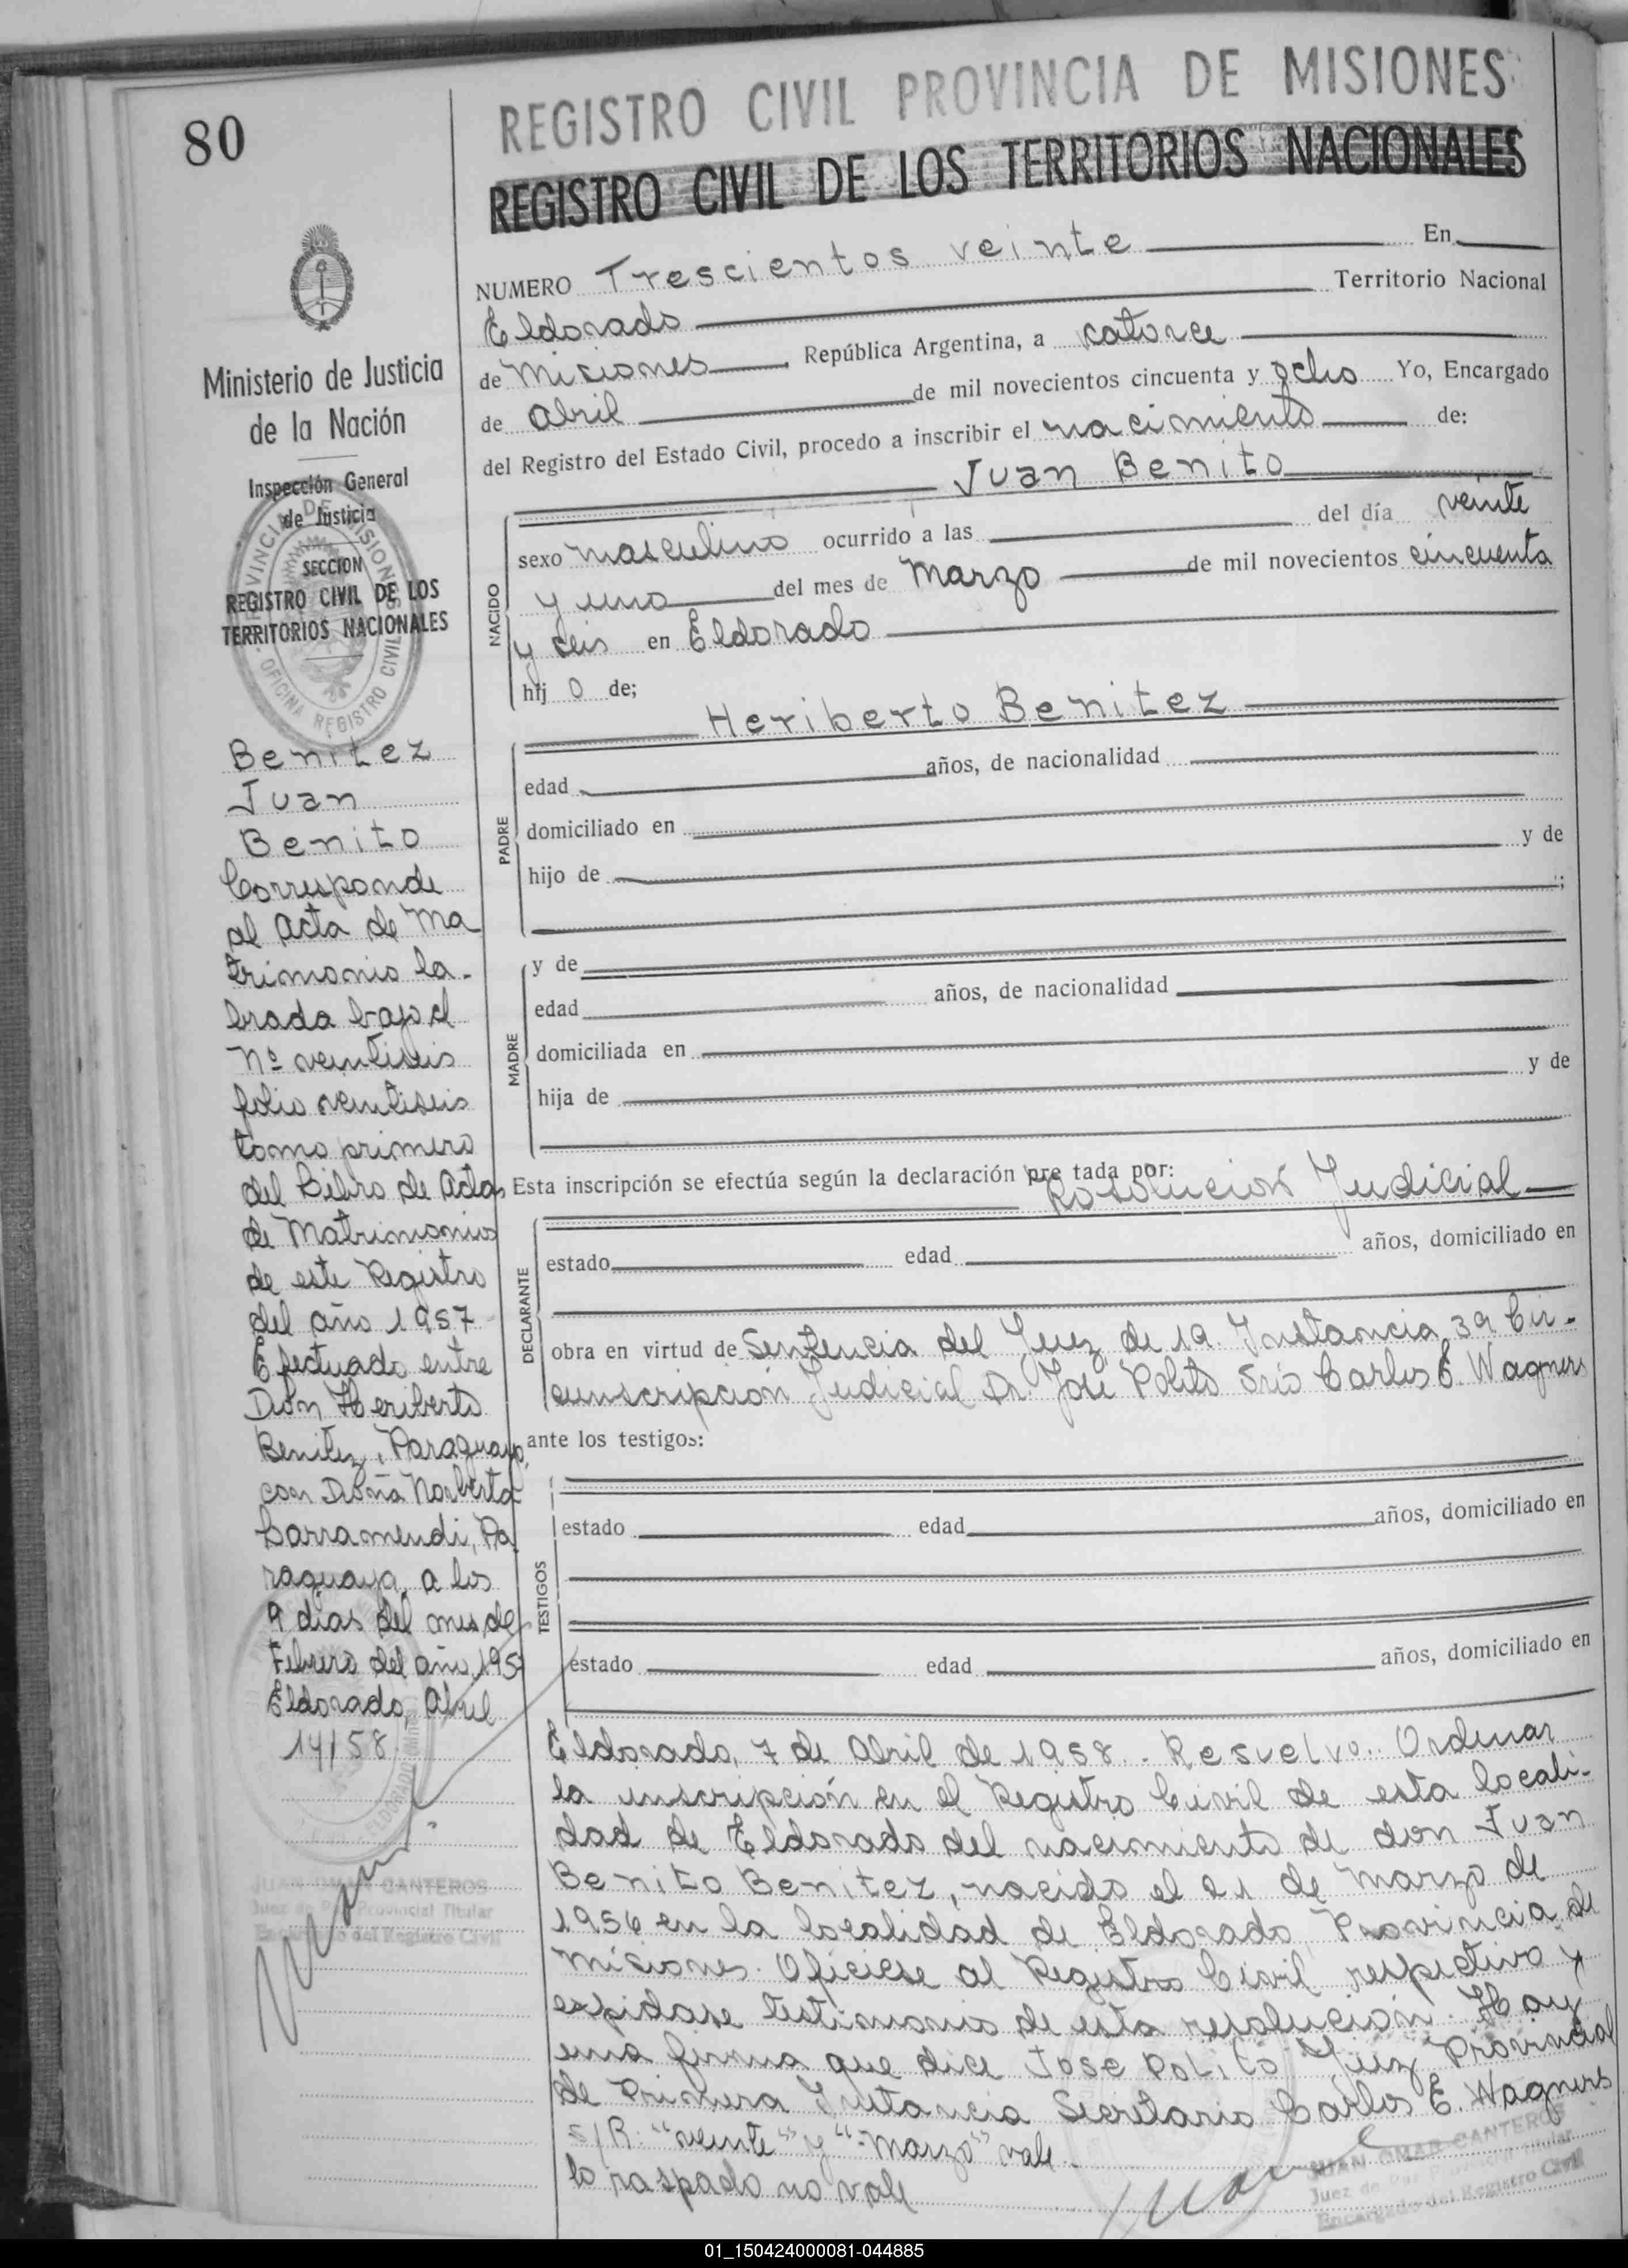 80
REGISTRO CIVIL PROVINCIA DE MISIONES
REGISTRO CIVIL DE LOS TERRITORIOS NACIONALES
Ministerio de Justicia
de la Nación
Inspección General
de Justicia
SECCION
REGISTRO CIVIL DE LOS
TERRITORIOS NACIONALES
PROVINCIA DE MISIONES
OFICINA REGISTRO CIVIL
Benitez
Juan
Benito
Corresponde
al Acta de Ma
trimonio la-
brada bajo el
Nº veintiseis
folio veintiseis
tomo primero
del Libro de Actas
de Matrimonios
de este Registro
del año 1957
Efectuado entre
Don Heriberto
Benitez, Paraguayo,
con Doña Norberta
Carramendi, Pa
raguaya, a los
9 dias del mes de
Febrero del año 195
Eldorado, Abril
14/58
JUAN OMAR CANTEROS
Juez de Paz Provincial Titular
Encargado del Registro Civil
NUMERO Trescientos veinte En
Eldorado Territorio Nacional
de Misiones, República Argentina, a catorce
de Abril de mil novecientos cincuenta y ocho Yo, Encargado
del Registro del Estado Civil, procedo a inscribir el nacimiento de:
Juan Benito
NACIDO
sexo masculino ocurrido a las del día veinte
y uno del mes de Marzo de mil novecientos cincuenta
y seis en Eldorado
hij o de;
Heriberto Benitez
PADRE
edad años, de nacionalidad
domiciliado en
hijo de y de
;
MADRE
y de
edad años, de nacionalidad
domiciliada en
hija de y de
Esta inscripción se efectúa según la declaración pre tada por:
Resolución Judicial
DECLARANTE
estado edad años, domiciliado en
obra en virtud de Sentencia del Juez de 1a. Instancia, 3a Cir-
cunscripción Judicial Dr. José Polito Srio Carlos E. Wagners
ante los testigos:
TESTIGOS
estado edad años, domiciliado en
estado edad años, domiciliado en
Eldorado, 7 de Abril de 1958.. Resuelvo.. Ordenar
la inscripción en el Registro Civil de esta locali-
dad de Eldorado del nacimiento de don Juan
Benito Benitez, nacido el 21 de Marzo de
1956 en la localidad de Eldorado, Provincia de
Misiones. Oficiese al Registro Civil respectivo y
expidase testimonio de esta resolución. Hay
una firma que dice Jose Polito Juez Provincial
de Primera Instancia Secretario Carlos E. Wagners
S/R: "veinte" y "Marzo" vale.
lo raspado no vale
JUAN OMAR CANTEROS
Juez de Paz Provincial Titular
Encargado del Registro Civil
01_150424000081-044885